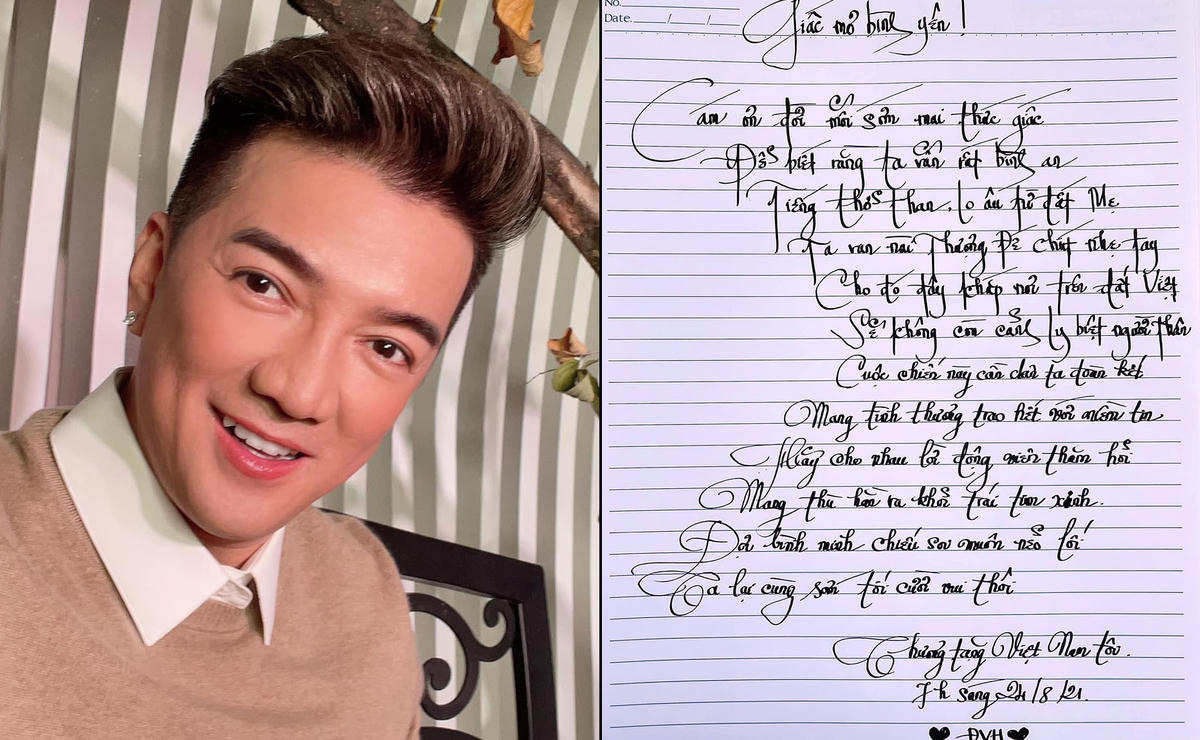 No.
Date. / / /
Giấc mơ bình yên !
Cám ơn đời mỗi sớm mai thức giấc
Để biết rằng ta vẫn rất bình an
Tiếng thở than, lo âu từ đất Mẹ
Ta van nài Thượng Đế chút nhẹ tay
Cho đó đây khắp nơi trên đất Việt
Sẽ không còn cảnh ly biệt người thân
Cuộc chiến này cần chúng ta đoàn kết
Mang tình thương trao hết với niềm tin
Hãy cho nhau lời động viên thăm hỏi
Mang thù hằn ra khỏi trái tim xinh.
Đợi bình minh chiếu soi muôn nẻo lối
Ta lại cùng sớm tối cười vui thôi
Thương tặng Việt Nam tôi.
7h sáng 24/8/21.
ĐVH